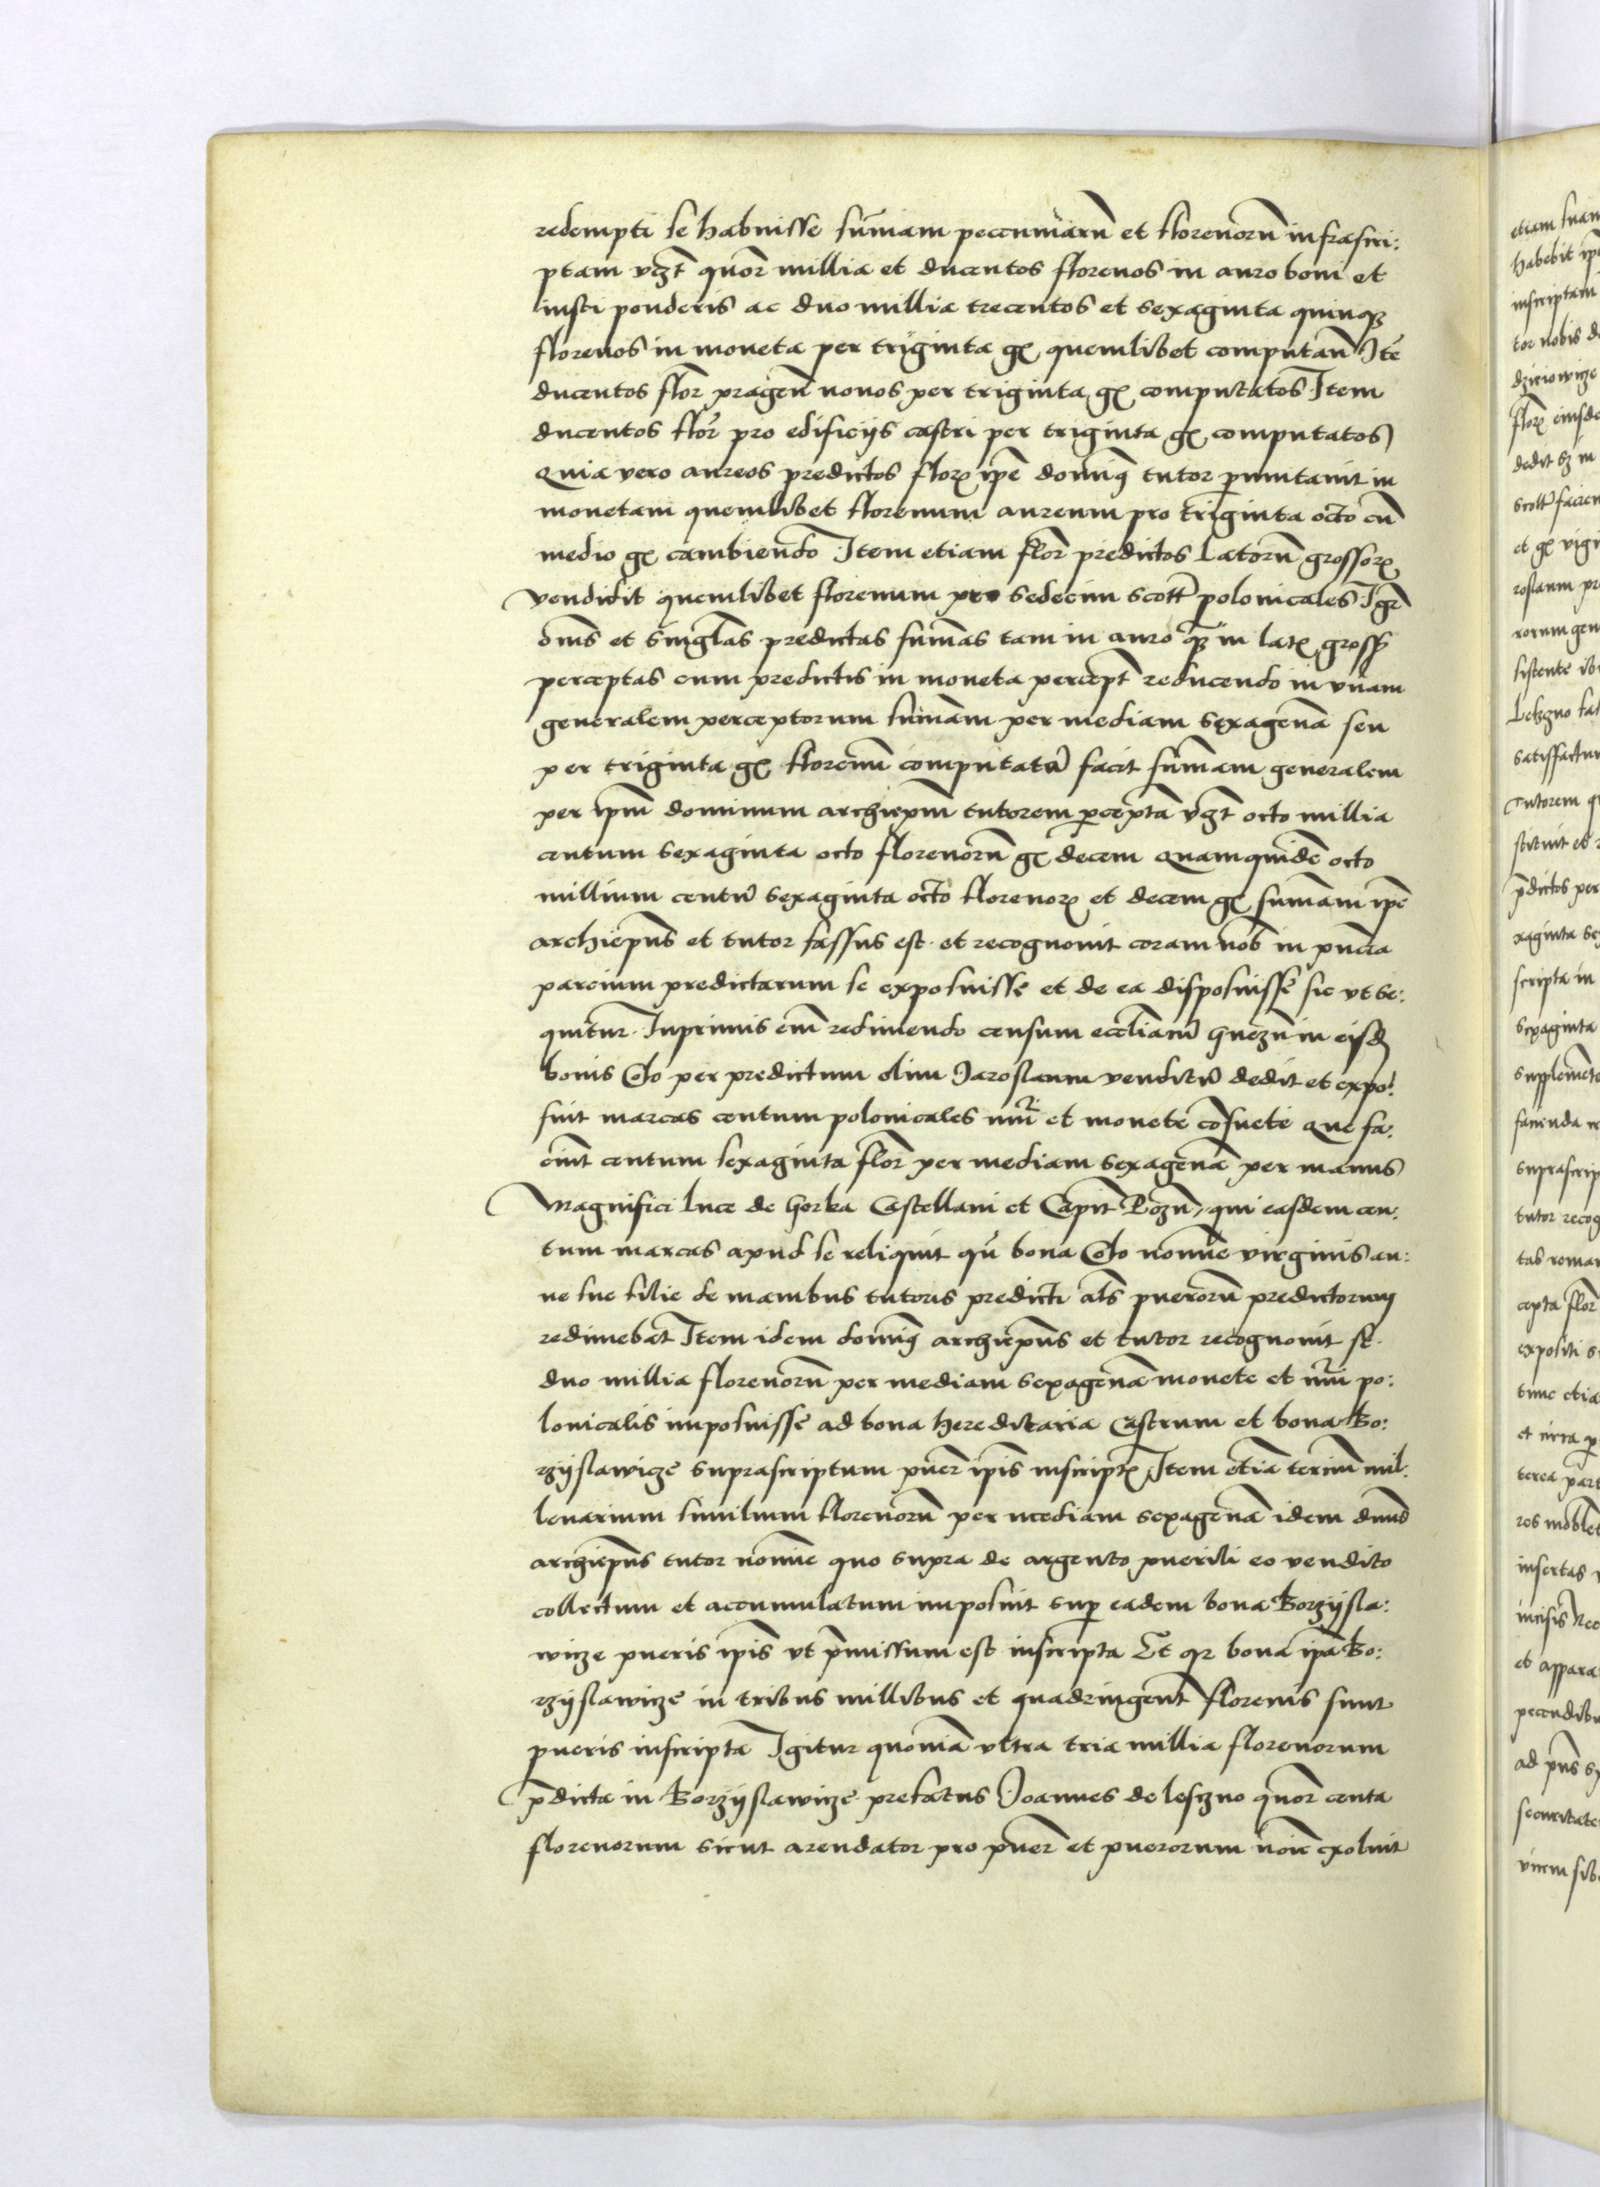 redempti se habuisse sum̄am peccuniarū et florenorū infrascri:
ptam vꝫt quōr millia et ducentos florenos in auro boni et
iusti ponderis ac duo millia trecentos et sexaginta quinqꝫ
florenos in moneta per triginta gꝭ quemlibet computan̄ Itē
ducentos flor̄ pragen̄ nouos per triginta gꝭ computatos Item
ducentos flor̄ pro edificijs castri per triginta gꝭ computatos
Quia vero aureos predictos florꝭ ip̄e domiꝰ tutor ꝑmutauit in
monetam quemlibet florenum aureum pro triginta octo cū
medio gꝭ cambiendo Item etiam flor̄ predictos Latorū grossorꝭ
vendidit quemlibet florenum pro sedecim scott̄ polonicales Igr̄
om̄s et singl̄as predictas sum̄as tam in auro qꝫ in latꝭ gross̄
perceptas cum predictis in moneta percept̄ reducendo in vnam
generalem perceptorum sum̄am per mediam sexagenā seu
per triginta gꝭ florenū computatū facit sum̄am generalem
per ip̄m dominum archiep̄m tutorem ꝑceptā vꝫt octo millia
centum sexaginta octo florenorū gꝭ decem Quamquidē octo
millium centū sexaginta octo florenorꝭ et decem gꝭ sum̄am ip̄e
archiep̄us et tutor fassus est et recognouit coram nob̄ in pn̄cia
parcium predictarum se exposuisse et de ea disposuisse sic vt se:
quitur. Inprimis em̄ redimendo censum eccl̄iarū Gnezn̄ in eisd̄
bonis Colo per predictum olim Iaroslaum venditū dedit et expo:
suit marcas centum polonicales nūi et monete cōsuete que fa:
ciunt centum sexaginta flor̄ per mediam sexagenā per manus
Magnifici luce de Gorka Castellani et Capit̄ Pozn̄, qui easdem cen:
tum marcas apud se reliquit qn̄ bona Colo nomīe virginis an:
ne sue filie de manibus tutoris predicti al̄s puerorū predictorum
redimebat Item idem domiꝰ archiep̄us et tutor recognouit se
duo millia florenorū per mediam sexagenā monete et nūi po:
lonicalis imposuisse ad bona hereditaria Castrum et bona Bo:
rzyslawicze suprascriptum puer̄ ip̄is inscriptꝭ Item etiā terciū mil:
lenarium similium florenorū per mediam sexagenā idem dn̄us
archiep̄us tutor nomīe quo supra de argento puerili eo vendito
collectum et accumulatum imposuit suꝑ eadem bona Borzysla:
wicze pueris ip̄is vt p̄missum est inscripta Et qꝫ bona ip̄a Bo:
rzyslawicze in tribus millibus et quadringent̄ florenis sunt
pueris inscripta Igitur quoniā vltra tria millia florenorum
p̄dicta in Borzyslawicze prefatus Ioannes de leszno quōr centa
florenorum sicut arendator pro puer̄ et puerorum noīe exoluit